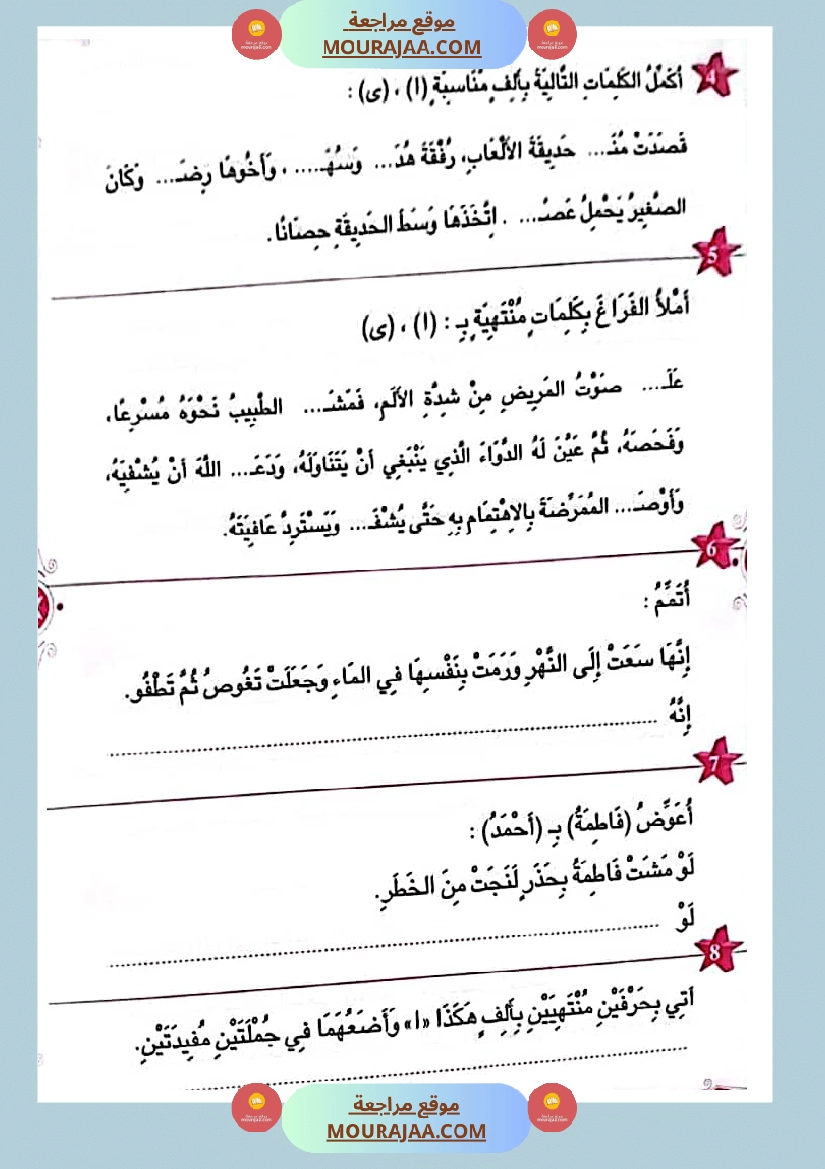 موقع مراجعة
MOURAJAA.COM
4
أُكَمِّلُ الكَلِمَاتِ التَّالِيَةَ بِأَلِفٍ مُنَاسِبَةٍ (ا) ، (ى) :
قَصَدَتْ مُنَـ... حَدِيقَةَ الأَلْعَابِ، رُفْقَةَ هُدَ... وَسُهَـ.... ، وَأَخُوهَا رِضَـ... وَكَانَ
الصَّغِيرُ يَحْمِلُ عَصَـ... . اِتَّخَذَهَا وَسَطَ الحَدِيقَةِ حِصَانًا.
5
أَمْلَأُ الفَرَاغَ بِكَلِمَاتٍ مُنْتَهِيَةٍ بِـ : (ا) ، (ى)
عَلَـ... صَوْتُ المَرِيضِ مِنْ شِدَّةِ الأَلَمِ، فَمَشَـ... الطَّبِيبُ نَحْوَهُ مُسْرِعًا،
وَفَحَصَهُ، ثُمَّ عَيَّنَ لَهُ الدَّوَاءَ الَّذِي يَنْبَغِي أَنْ يَتَنَاوَلَهُ، وَدَعَـ... اللَّهَ أَنْ يُشْفِيَهُ،
وَأَوْصَـ... المُمَرِّضَةَ بِالاِهْتِمَامِ بِهِ حَتَّى يُشْفَـ... وَيَسْتَرِدَّ عَافِيَتَهُ.
6
أُتَمِّمُ :
إِنَّهَا سَعَتْ إِلَى النَّهْرِ وَرَمَتْ بِنَفْسِهَا فِي المَاءِ وَجَعَلَتْ تَغُوصُ ثُمَّ تَطْفُو.
إِنَّهُ ..........
7
أُعَوِّضُ (فَاطِمَةُ) بِـ (أَحْمَدُ) :
لَوْ مَشَتْ فَاطِمَةُ بِحَذَرٍ لَنَجَتْ مِنَ الخَطَرِ.
لَوْ ..........
8
آتِي بِحَرْفَيْنِ مُنْتَهِيَيْنِ بِأَلِفٍ هَكَذَا «ا» وَأَضَعُهُمَا فِي جُمْلَتَيْنِ مُفِيدَتَيْنِ.
موقع مراجعة
MOURAJAA.COM